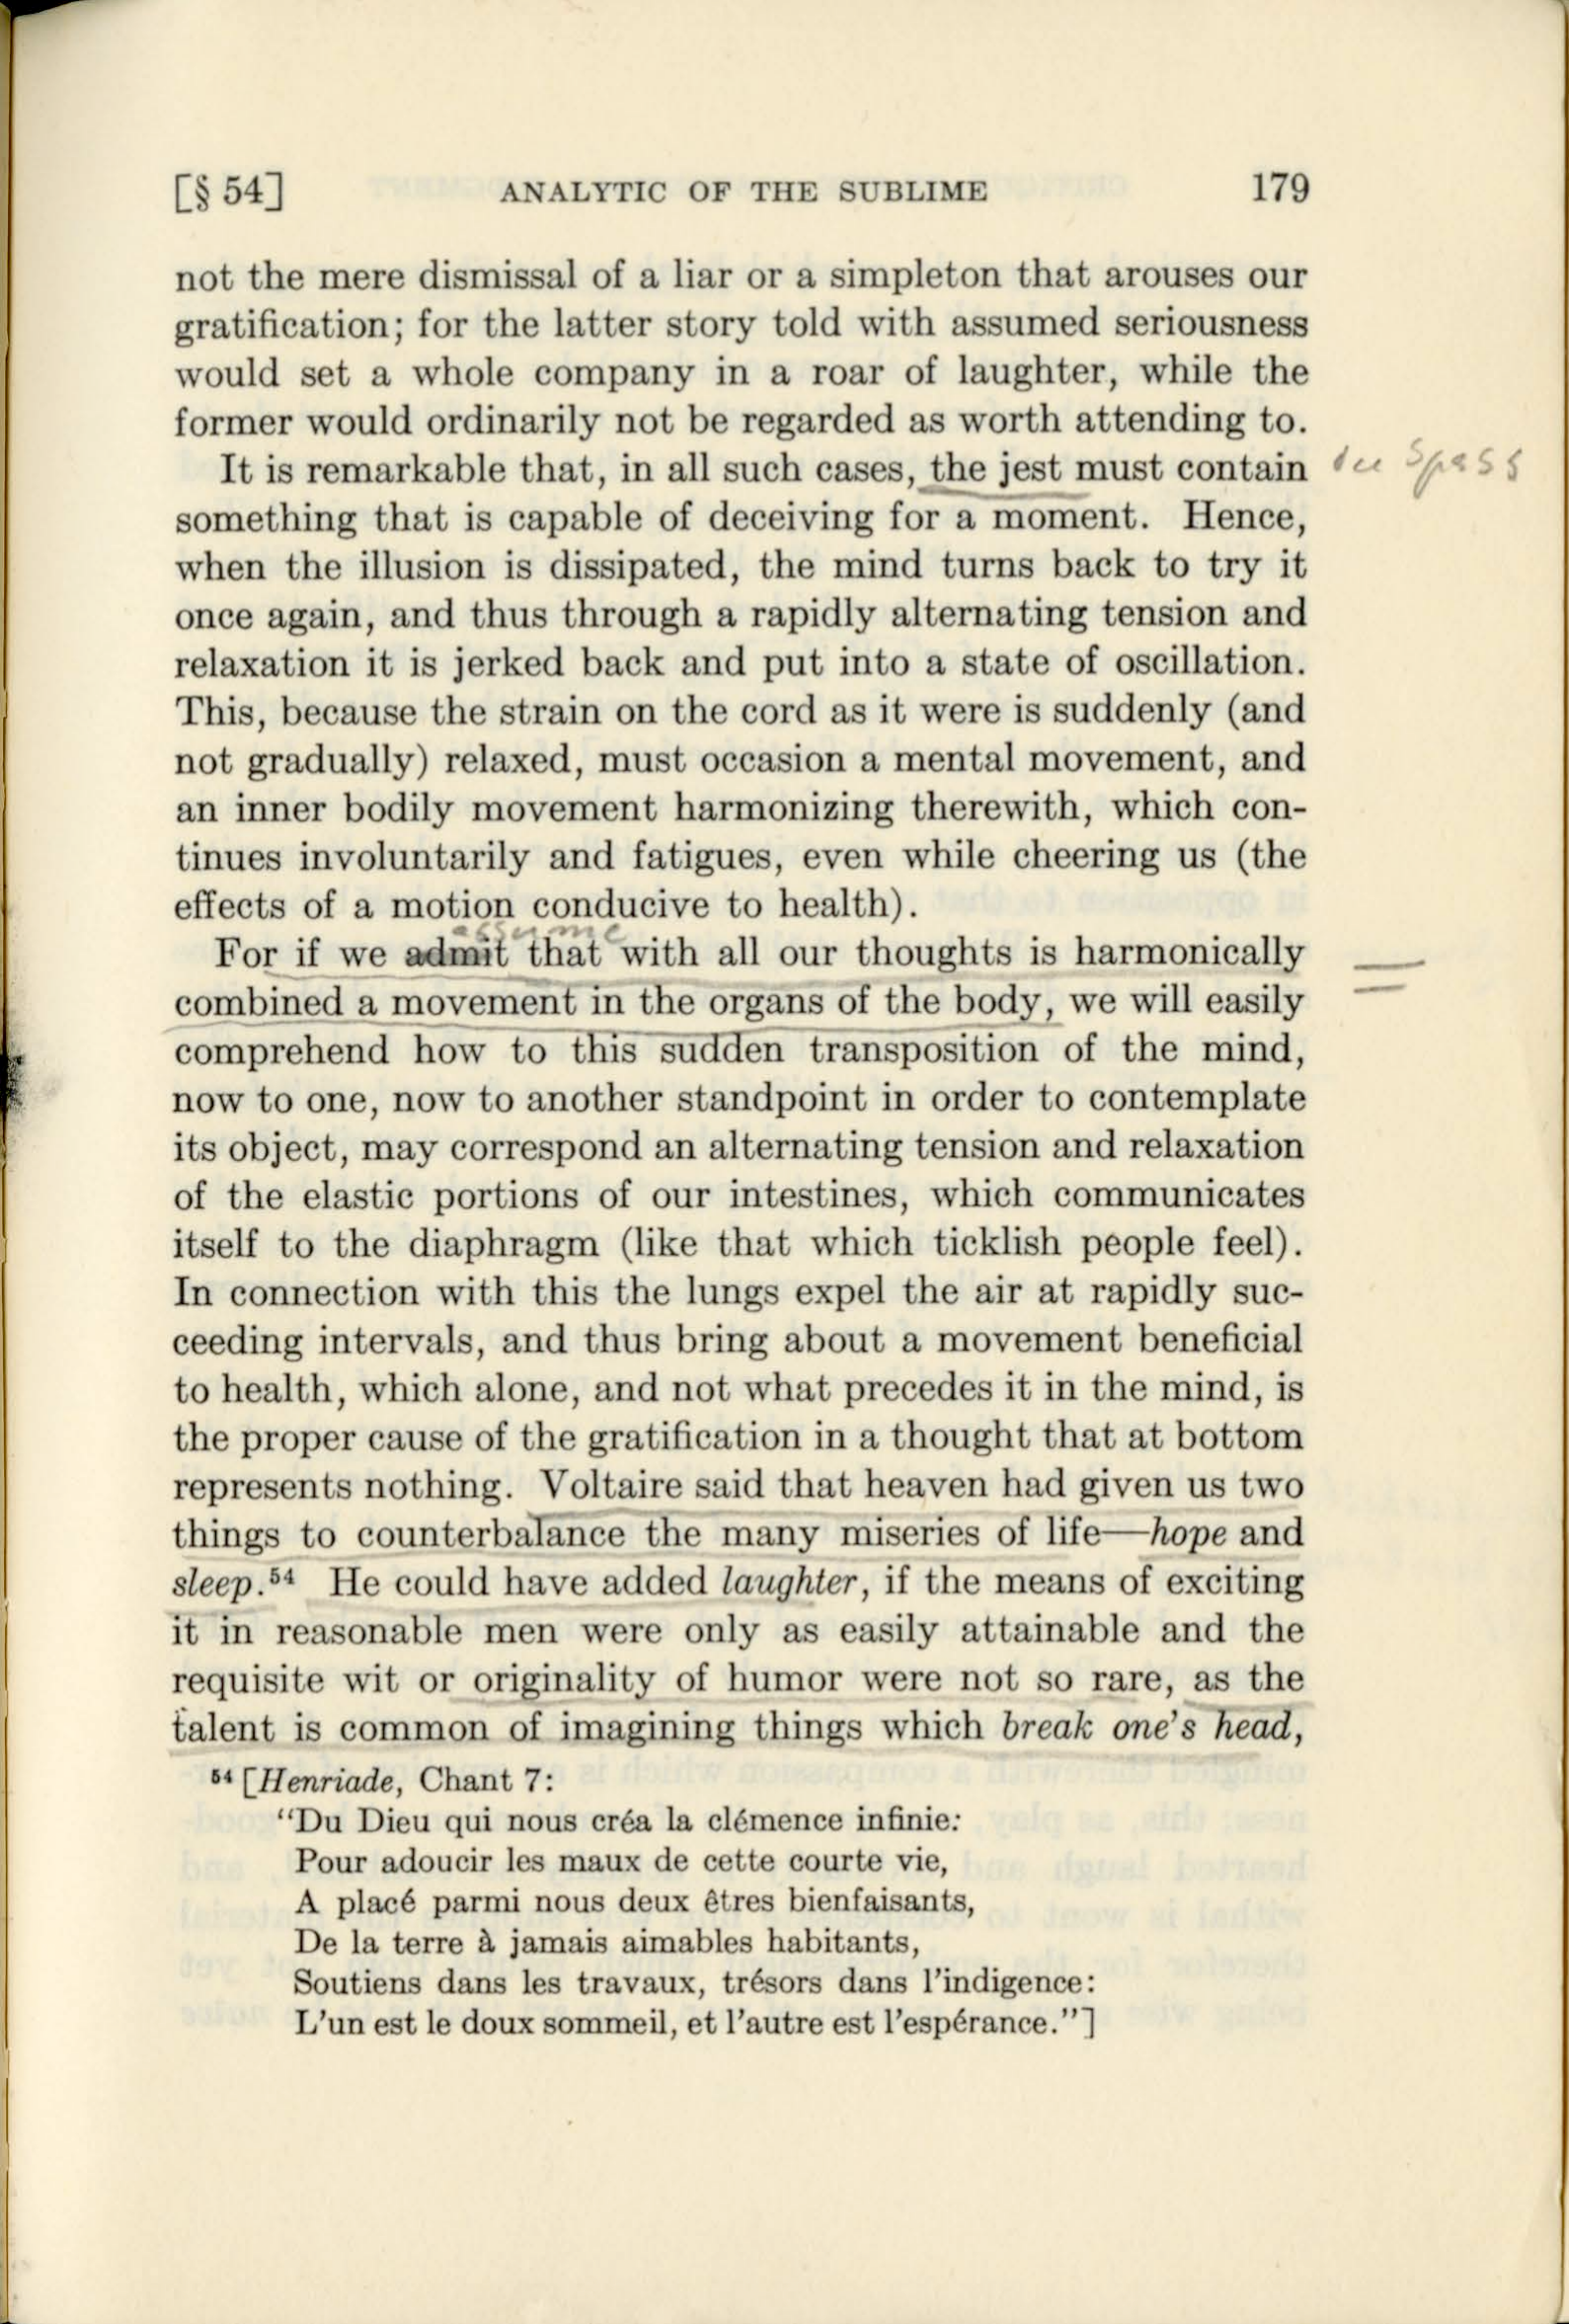 [§ 54] ANALYTIC OF THE SUBLIME 179
not the mere dismissal of a liar or a simpleton that arouses our
gratification; for the latter story told with assumed seriousness
would set a whole company in a roar of laughter, while the
former would ordinarily not be regarded as worth attending to.
It is remarkable that, in all such cases, the jest must contain
Spass
something that is capable of deceiving for a moment. Hence,
when the illusion is dissipated, the mind turns back to try it
once again, and thus through a rapidly alternating tension and
relaxation it is jerked back and put into a state of oscillation.
This, because the strain on the cord as it were is suddenly (and
not gradually) relaxed, must occasion a mental movement, and
an inner bodily movement harmonizing therewith, which con-
tinues involuntarily and fatigues, even while cheering us (the
effects of a motion conducive to health).
assume
For if we admit that with all our thoughts is harmonically
combined a movement in the organs of the body, we will easily
comprehend how to this sudden transposition of the mind,
now to one, now to another standpoint in order to contemplate
its object, may correspond an alternating tension and relaxation
of the elastic portions of our intestines, which communicates
itself to the diaphragm (like that which ticklish people feel).
In connection with this the lungs expel the air at rapidly suc-
ceeding intervals, and thus bring about a movement beneficial
to health, which alone, and not what precedes it in the mind, is
the proper cause of the gratification in a thought that at bottom
represents nothing. Voltaire said that heaven had given us two
things to counterbalance the many miseries of life—hope and
sleep.⁵⁴ He could have added laughter, if the means of exciting
it in reasonable men were only as easily attainable and the
requisite wit or originality of humor were not so rare, as the
talent is common of imagining things which break one's head,
⁵⁴ [Henriade, Chant 7:
"Du Dieu qui nous créa la clémence infinie:
Pour adoucir les maux de cette courte vie,
A placé parmi nous deux êtres bienfaisants,
De la terre à jamais aimables habitants,
Soutiens dans les travaux, trésors dans l'indigence:
L'un est le doux sommeil, et l'autre est l'espérance."]